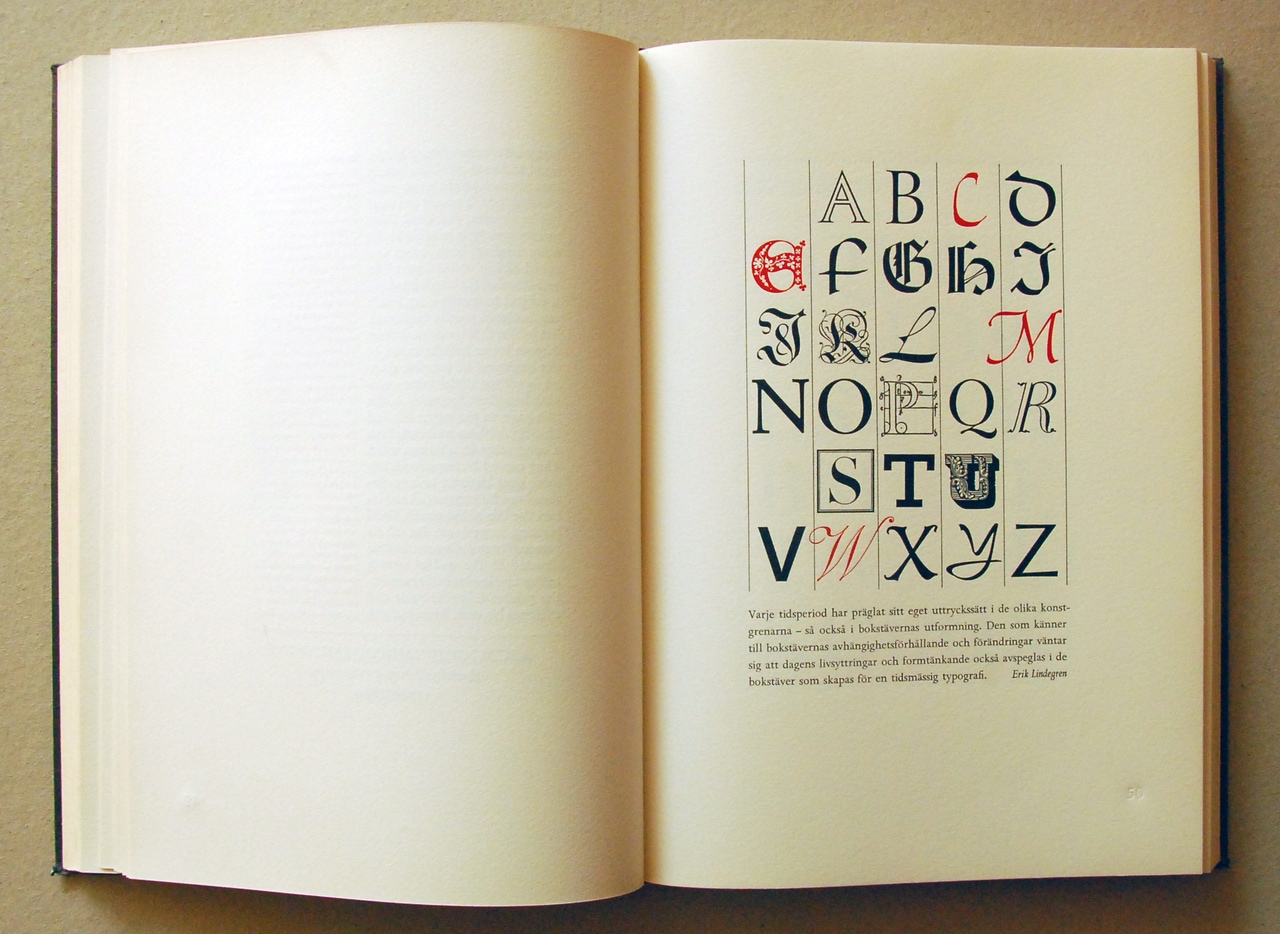 A B C D
E F G H I
J K L M
N O P Q R
S T U
V W X Y Z
Varje tidsperiod har präglat sitt eget uttryckssätt i de olika konst-
grenarna – så också i bokstävernas utformning. Den som känner
till bokstävernas avhängighetsförhållande och förändringar väntar
sig att dagens livsyttringar och formtänkande också avspeglas i de
bokstäver som skapas för en tidsmässig typografi. Erik Lindegren
50